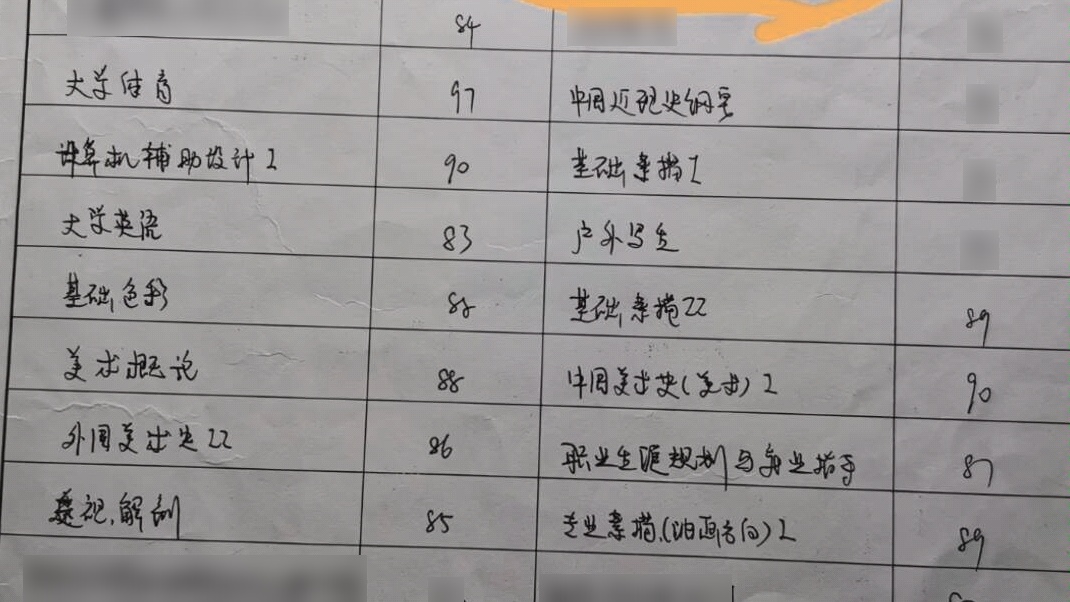 84
大学体育 97 中国近现史纲要
计算机辅助设计I 90 基础素描I
大学英语 83 户外写生
基础色彩 88 基础素描II 89
美术概论 88 中国美术史(美术)I 90
外国美术史II 86 职业生涯规划与就业指导 87
透视.解剖 85 专业素描.(油画方向)I 89